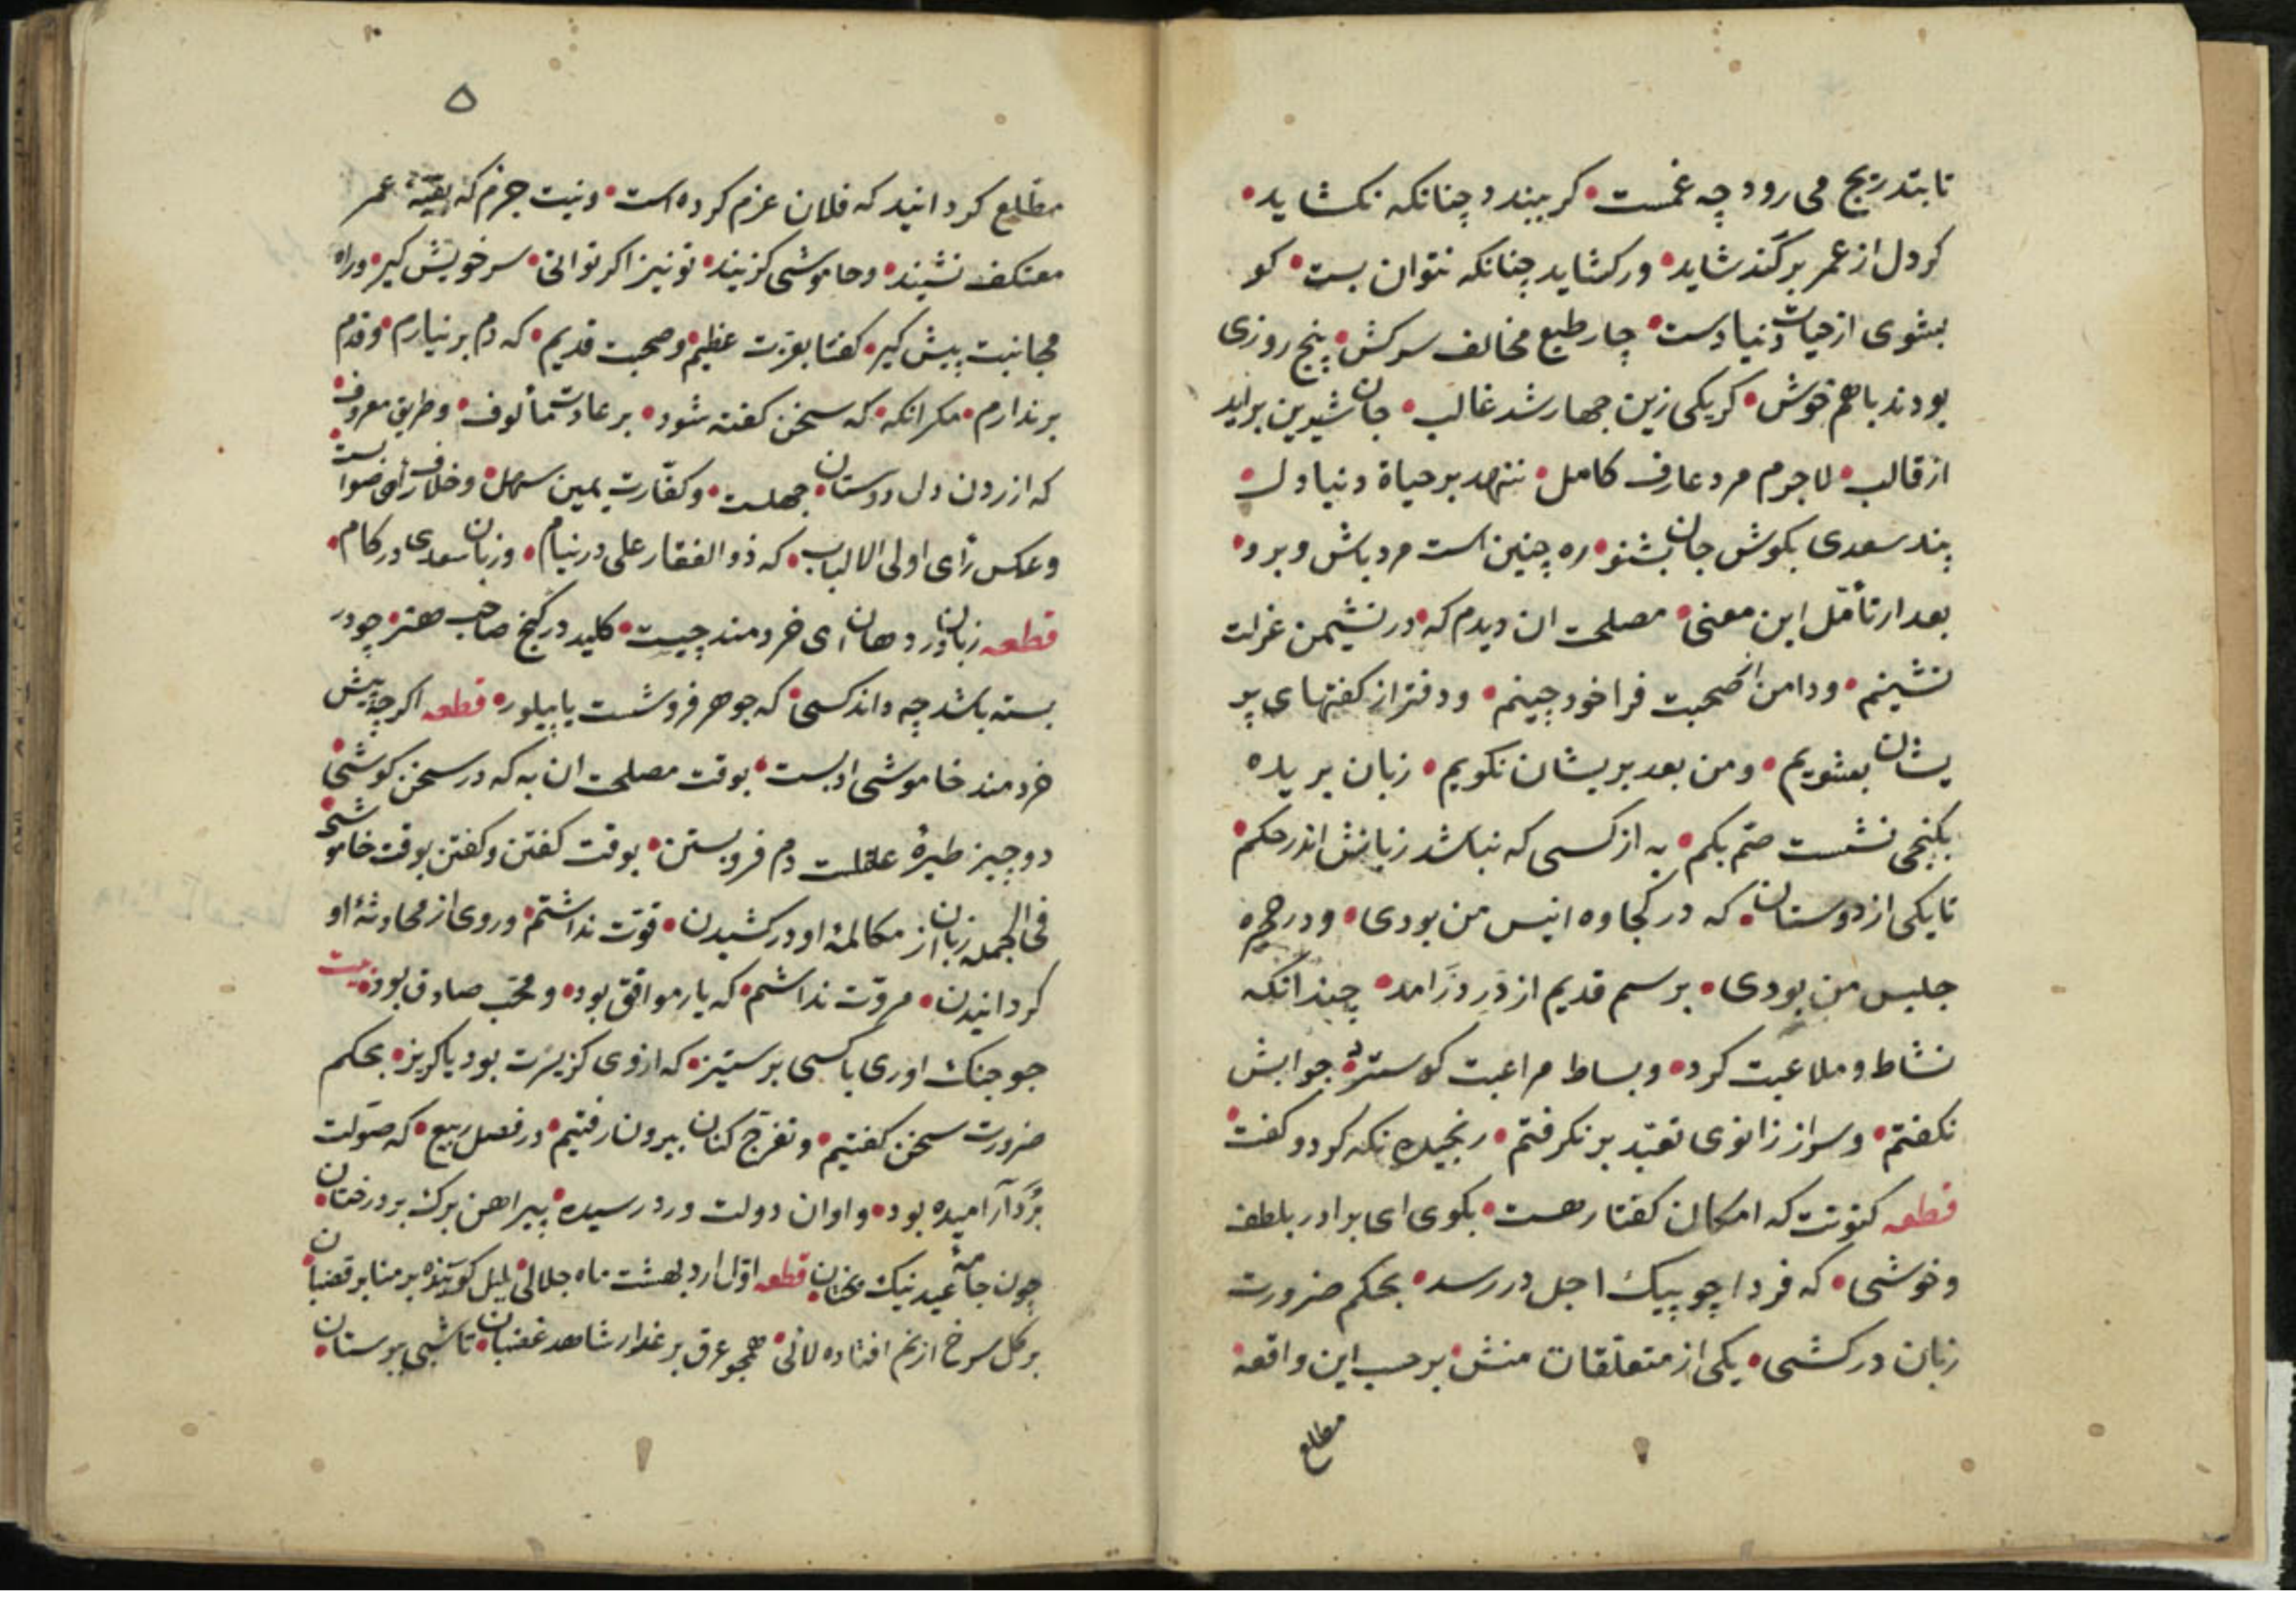 تا بتدریج می رود چه غمست • کر ببندد چنانکه نکشاید •
کر دل از عمر برکند شاید • ور کشاید چنانکه نتوان بست • کو
بشوی از حیات دنیا دست • چار طبع مخالف سرکش • پنج روزی
بودند باهم خوش • کر یکی زین جهار شد غالب • جان شیرین براید
از قالب • لاجرم مرد عارف کامل • ننهد بر حیاة دنیا دل •
پند سعدی بکوش جان بشنو • ره چنین است مرد باش و برو •
بعد از تأمّل این معنی • مصلحت ان دیدم که • در نشیمن عزلت
نشینم • ودامن از صحبت فراخود چینم • ودفتر از کفتهای پر
یشان بشویم • ومن بعد بریشان نکویم • زبان بریده
بکنجی نشست صمّ بکم • به از کسی که نباشد زبانش اندر حکم •
تا یکی از دوستان • که در کجاوه انیس من بودی • ودر حجره
جلیس من بودی • برسم قدیم از در درامد • چندانکه
نشاط وملاعبت کرد • وبساط مراعبت کوسترد • جوابش
نکفتم • وسر از زانوی تعبّد بر نکرفتم • رنجیده نکه کرد وکفت •
قطعه کنونت که امکان کفتار هست • بکوی ای برادر بلطف
وخوشی • که فردا چو پیک اجل در رسد • بحکم ضرورت
زبان درکشی • یکی از متعلّقات منش • برحسب این واقعه
مطلع
۵
مطّلع کردانید که فلان عزم کرده است • ونیت جزم که بقیّهٔ عمر
معتکف نشیند • وخاموشی کزیند • تو نیز اکر توانی • سر خویش کیر • وراه
مجانبت پیش کیر • کفتا بعزت عظیم • وصحبت قدیم • که دم بر نیارم • وقدم
برندارم • مکر انکه • که سخن کفته شود • بر عادت مألوف • وطریق معروف •
که ازردن دل دوستان • جهلست • وکفّارت یمین سهل • وخلاف رأی صوابست •
وعکس رأی اولی الالباب • که ذو الفقار علی در نیام • وزبان سعدی در کام •
قطعه زبان در دهان ای خردمند چیست • کلید در کنج صاحب هنر • چو در
بسته باشد چه داند کسی • که جوهر فروشست یا پیلور • قطعه اکرچه پیش
خردمند خاموشی ادبست • بوقت مصلحت ان به که در سخن کوشی •
دو چیز طیرهٔ عقلست دم فروبستن • بوقت کفتن وکفتن بوقت خاموشی •
فی الجمله زبان از مکالمهٔ او درکشیدن • قوّت نداشتم • وروی از محادثهٔ او
کردانیدن • مروّت نداشتم • که یار موافق بود • ومحبّ صادق بود • بیت
جو جنک اوری با کسی برستیز • که ازوی کزیرت بود یا کریز • بحکم
ضرورت سخن کفتیم • وتفرّج کنان بیرون رفتیم • در فصل ربیع • که صولت
برد آرامیده بود • واوان دولت ورد رسیده • پیراهن برک بر درختان •
چون جامهٔ عید نیک بختان • قطعه اوّل اردبهشت ماه جلالی • بلبل کوینده بر منابر قضبان •
بر کل سرخ از نم افتاده لالی • همجو عرق بر عذار شاهد غضبان • تا شبی ببوستان •